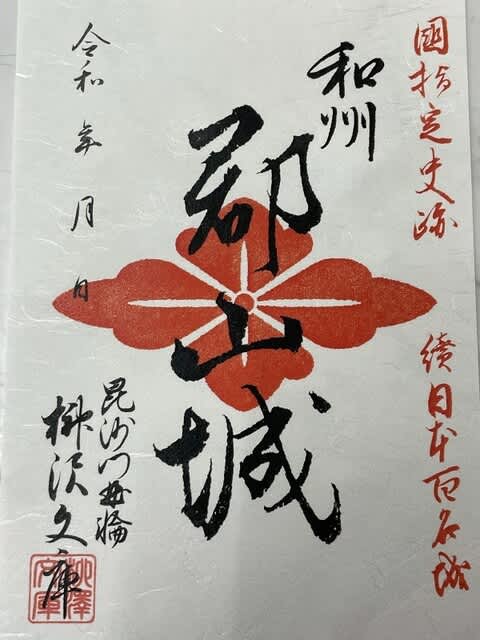 國指定史跡
續日本百名城
和州
郡山城
令和 年 月 日
毘沙門曲輪
柳沢文庫
柳澤文庫